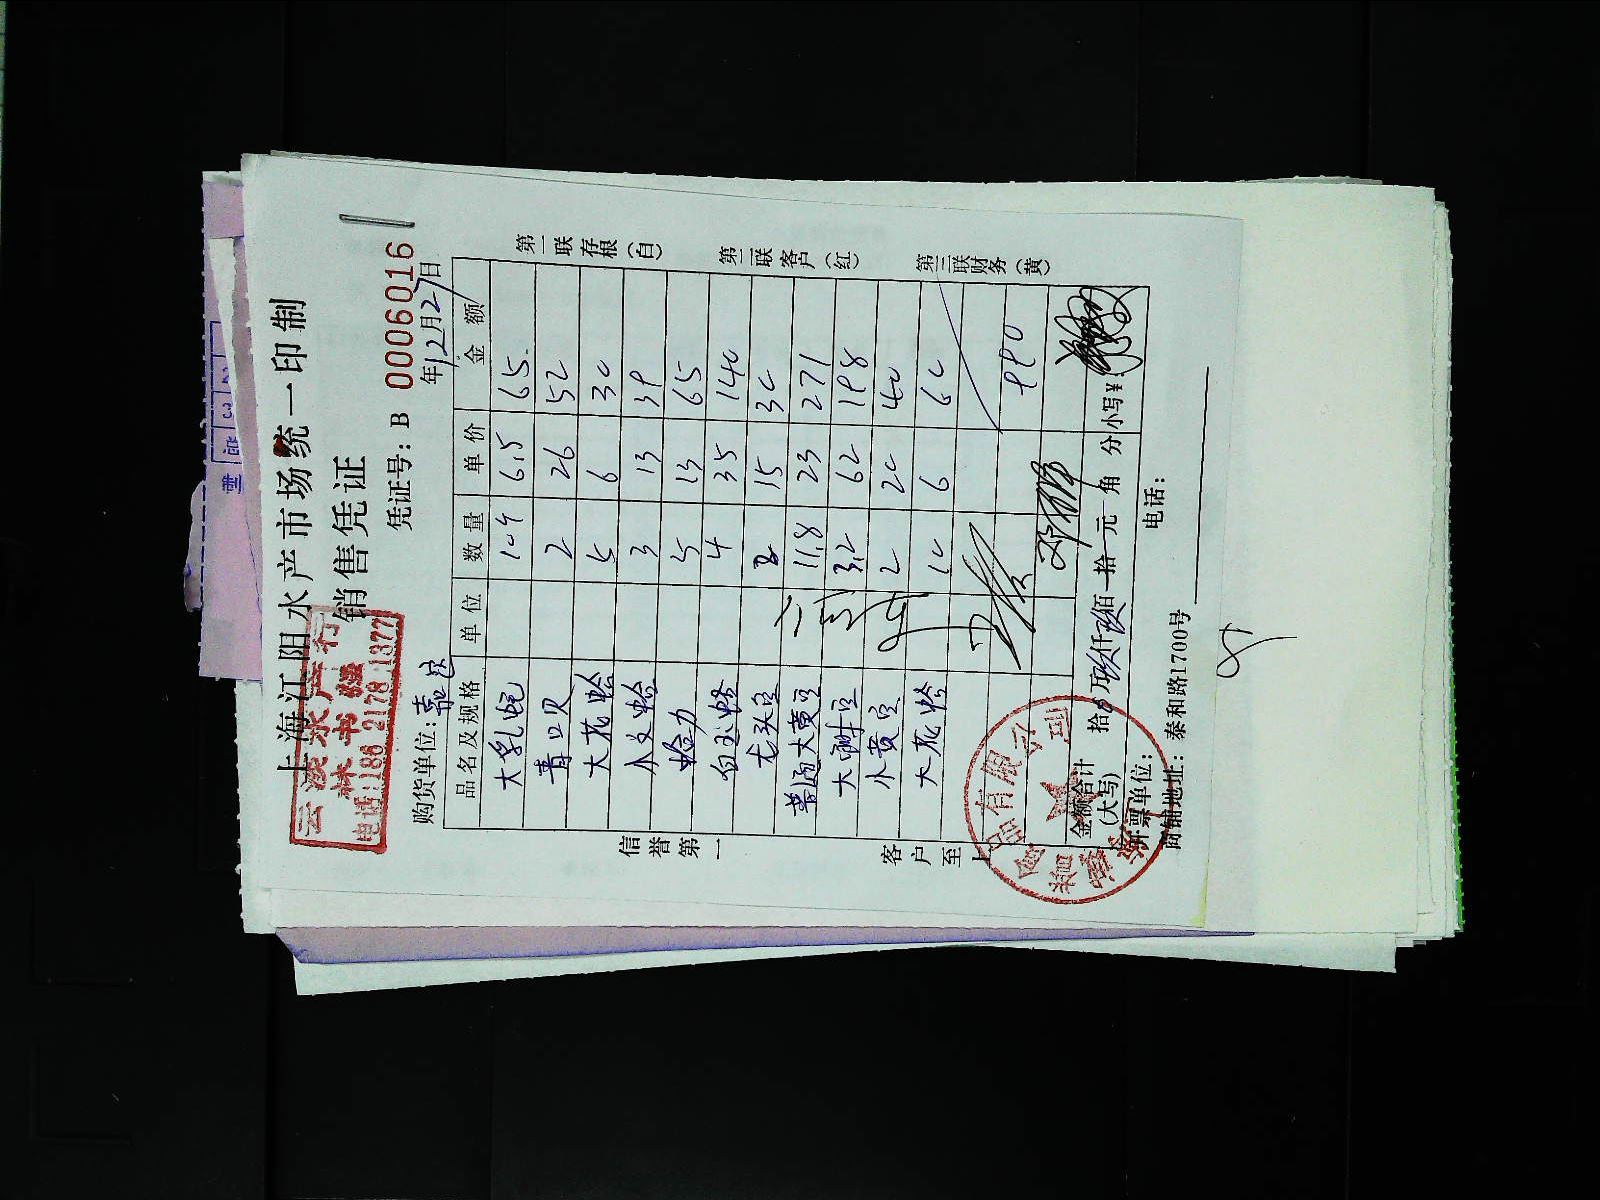 上海江阳水产市场统一印制
销售凭证
云溪水产行
林书强
电话:186 2178 1377
凭证号: B 0006016
购货单位: 嘉定
年12月27日
品名及规格 单位 数量 单价 金额
大乳蛏 10斤 6.5 65.
青口贝 2 26 52
大花蛤 5 6 30
小文蛤 3 13 39
蛤力 5 13 65
白玉蛤 4 35 140
尤头豆 2 15 30
普通大黄豆 11.8 23 271
大闸豆 3.2 62 198
小黄豆 2 20 40
大花蛤 10 6 60
990
金额合计
(大写)
拾 万 仟 玖佰 拾 元 角 分 小写¥:
开票单位:
电话:
商铺地址: 泰和路1700号
信誉第一
客户至上
第一联存根(白)
第二联客户(红)
第三联财务(黄)
有限公司